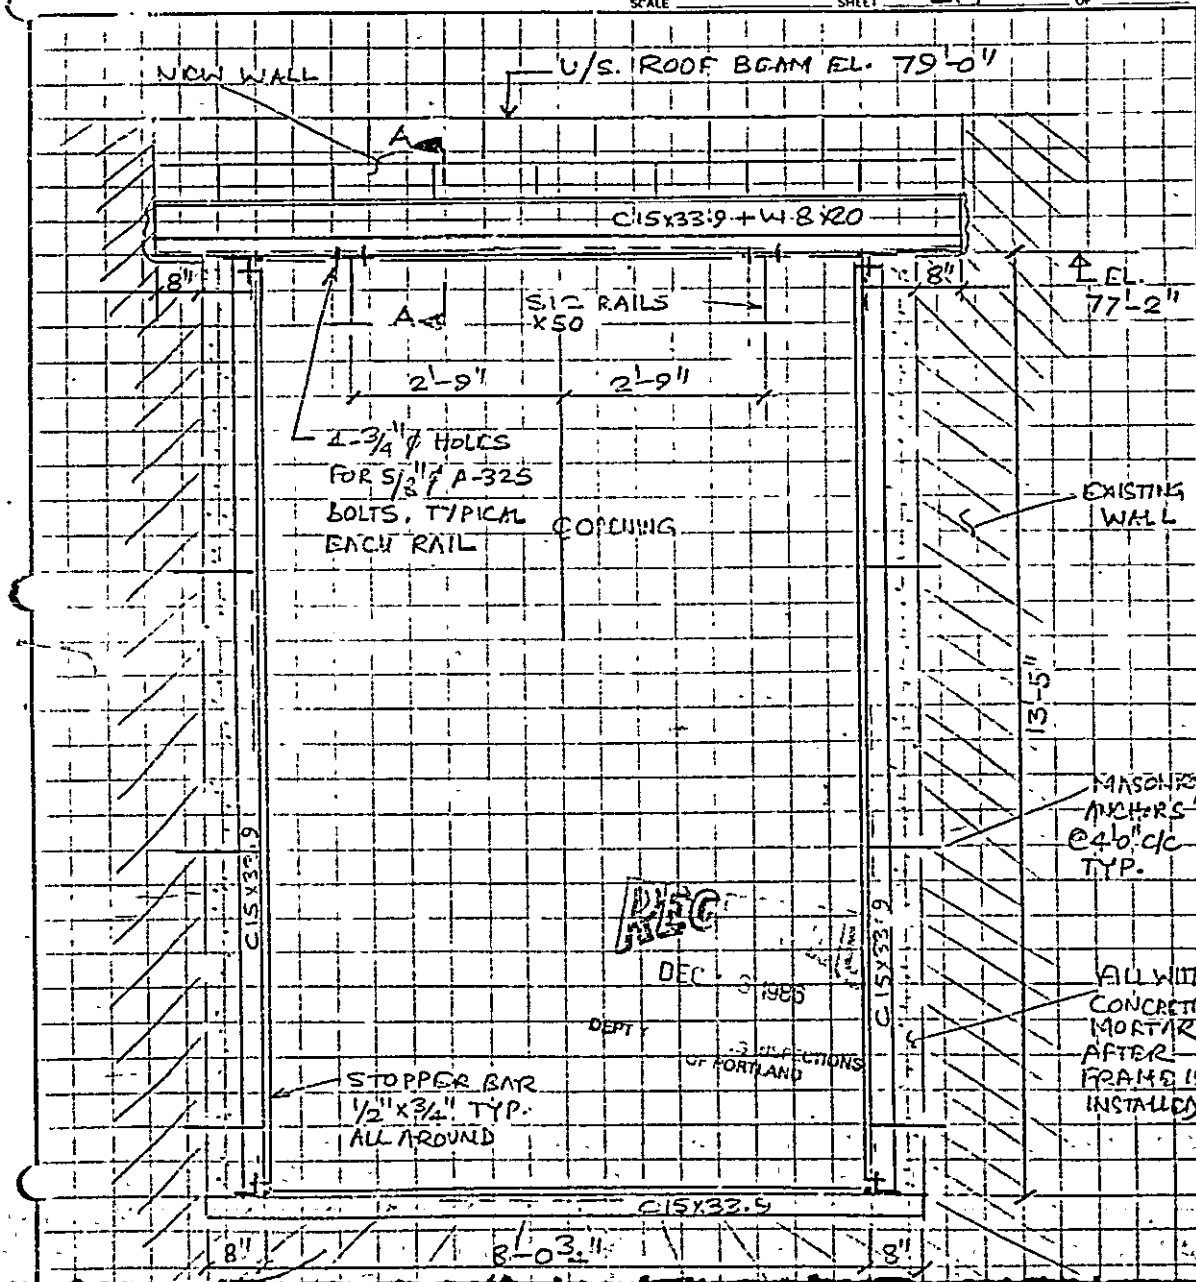 SCALE SHEET OF
NEW WALL
U/S. ROOF BEAM EL. 79'-0"
A
C15x33.9 + W 8 x20
8"
8"
EL.
77'-2"
A
S12 RAILS
x50
2'-9"
2'-9"
4-3/4"φ HOLES
FOR 5/8"φ A-325
BOLTS, TYPICAL
EACH RAIL
℄ OPENING
EXISTING
WALL
13'-5"
MASONRY
ANCHORS
@4'0" C/C
TYP.
C15x33.9
C15x33.9
REC
DEC 3 1986
DEPT
INSPECTIONS
OF PORTLAND
FILL WITH
CONCRETE
MORTAR
AFTER
FRAME IS
INSTALLED
STOPPER BAR
1/2" x 3/4" TYP.
ALL AROUND
C15x33.9
8"
8"